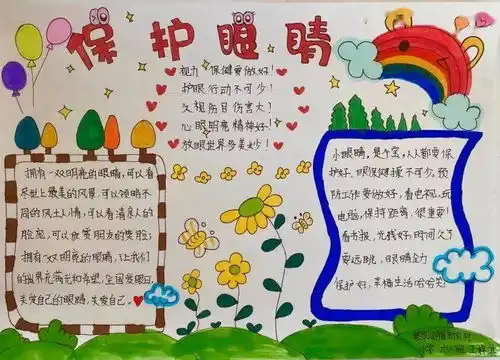 保护眼睛
视力保健要做好！
护眼行动不可少！
久视防目伤害大！
心眼明亮精神好！
放眼世界多美妙！
拥有一双明亮的眼睛，可以看
尽世上最美的风景，可以领略不
同的风土人情，可以看清亲人的
脸庞，可以欣赏朋友的笑脸；
拥有一双明亮的眼睛，让我们
的世界充满光和希望，全国爱眼日，
关爱自己的眼睛，关爱自己。
小眼睛，是个宝，人人都要保
护好，眼保健操不可少，预
防工作要做好，看电视，玩
电脑，保持距离，很重要！
看书报，光线好，时间久了
要远眺，眼睛全力
保护好，幸福生活哈哈笑